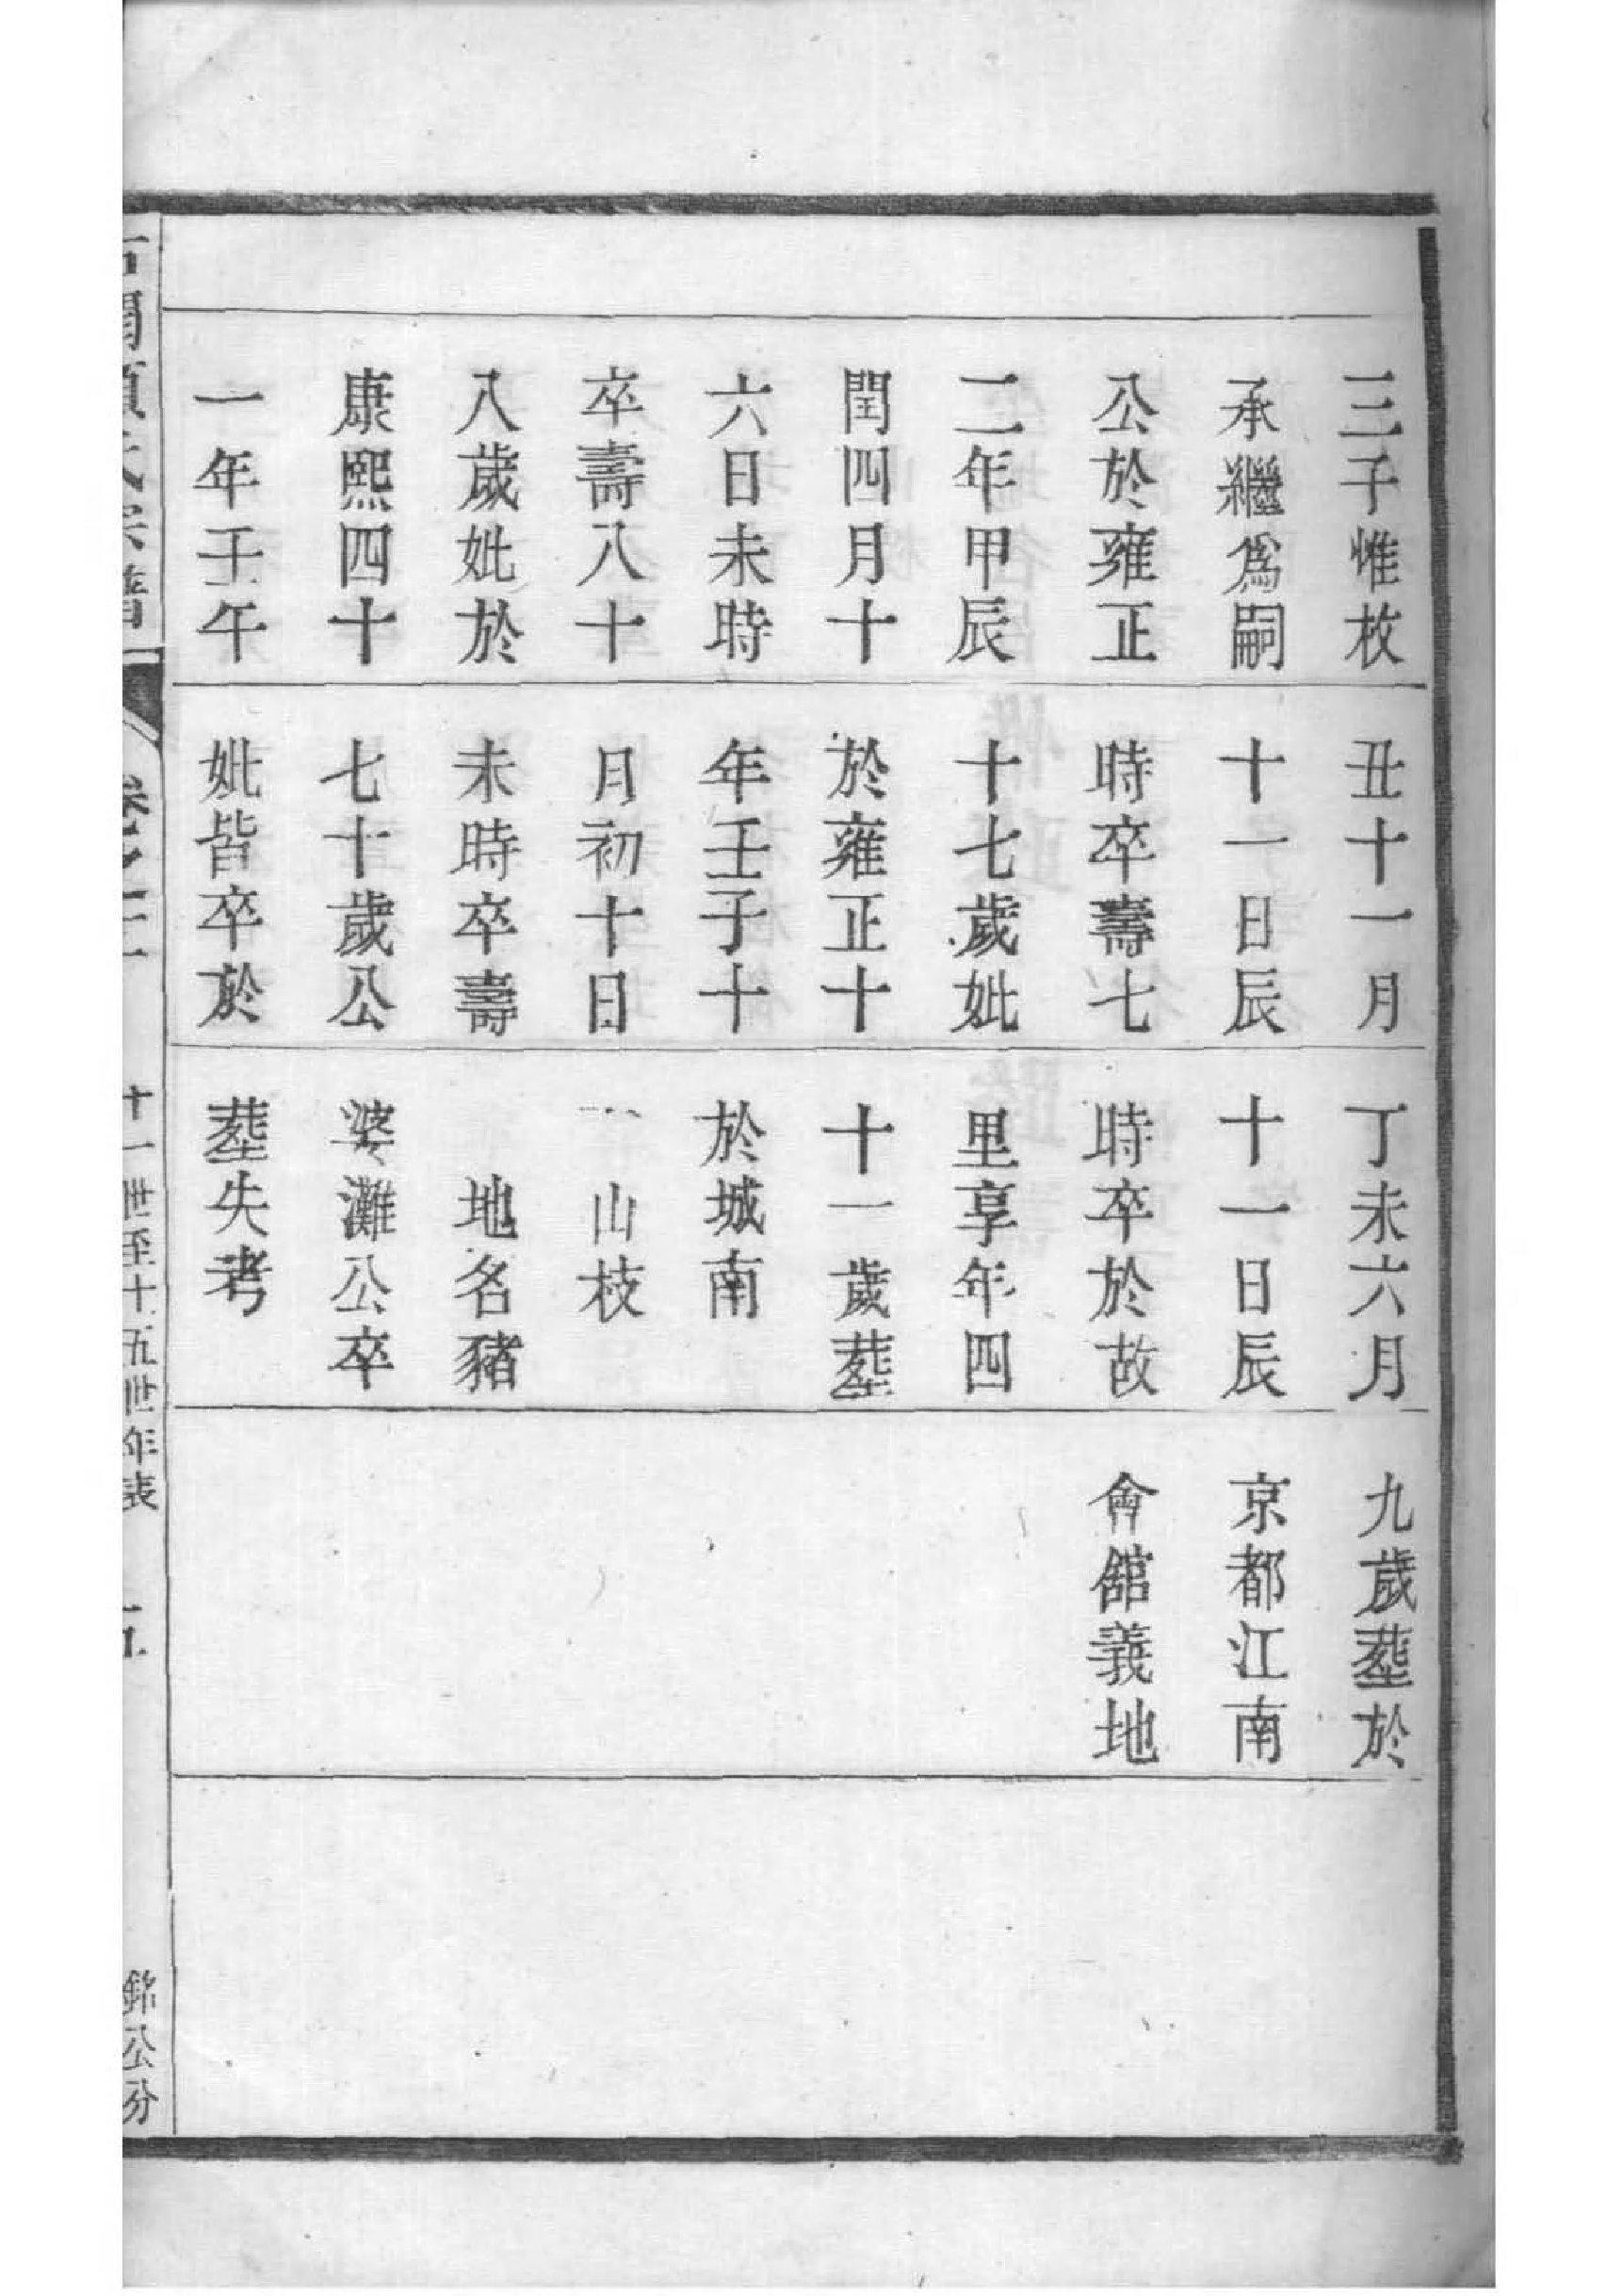 三子惟枚
承繼爲嗣
公於雍正
二年甲辰
閏四月十
六日未時
卒壽八十
八歲妣於
康熙四十
一年壬午
丑十一月
十一日辰
時卒壽七
十七歲妣
於雍正十
年壬子十
月初十日
未時卒壽
七十歲公
妣皆卒於
丁未六月
十一日辰
時卒於故
里享年四
十一歲葬
於城南
山枝
地名豬
婆灘公卒
葬失考
九歲葬於
京都江南
會舘義地
氏宗譜
卷之
十一世至十五世年表
五
銘公分